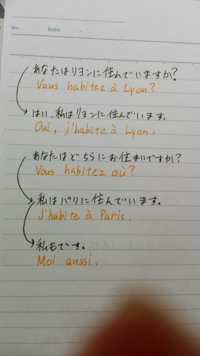 No.
Date
あなたはリヨンに住んでいますか?
Vous habitez à Lyon?
はい、私はリヨンに住んでいます。
Oui, j'habite à Lyon.
あなたはどちらにお住まいですか?
Vous habitez où?
私はパリに住んでいます。
J'habite à Paris.
私もです。
Moi aussi.